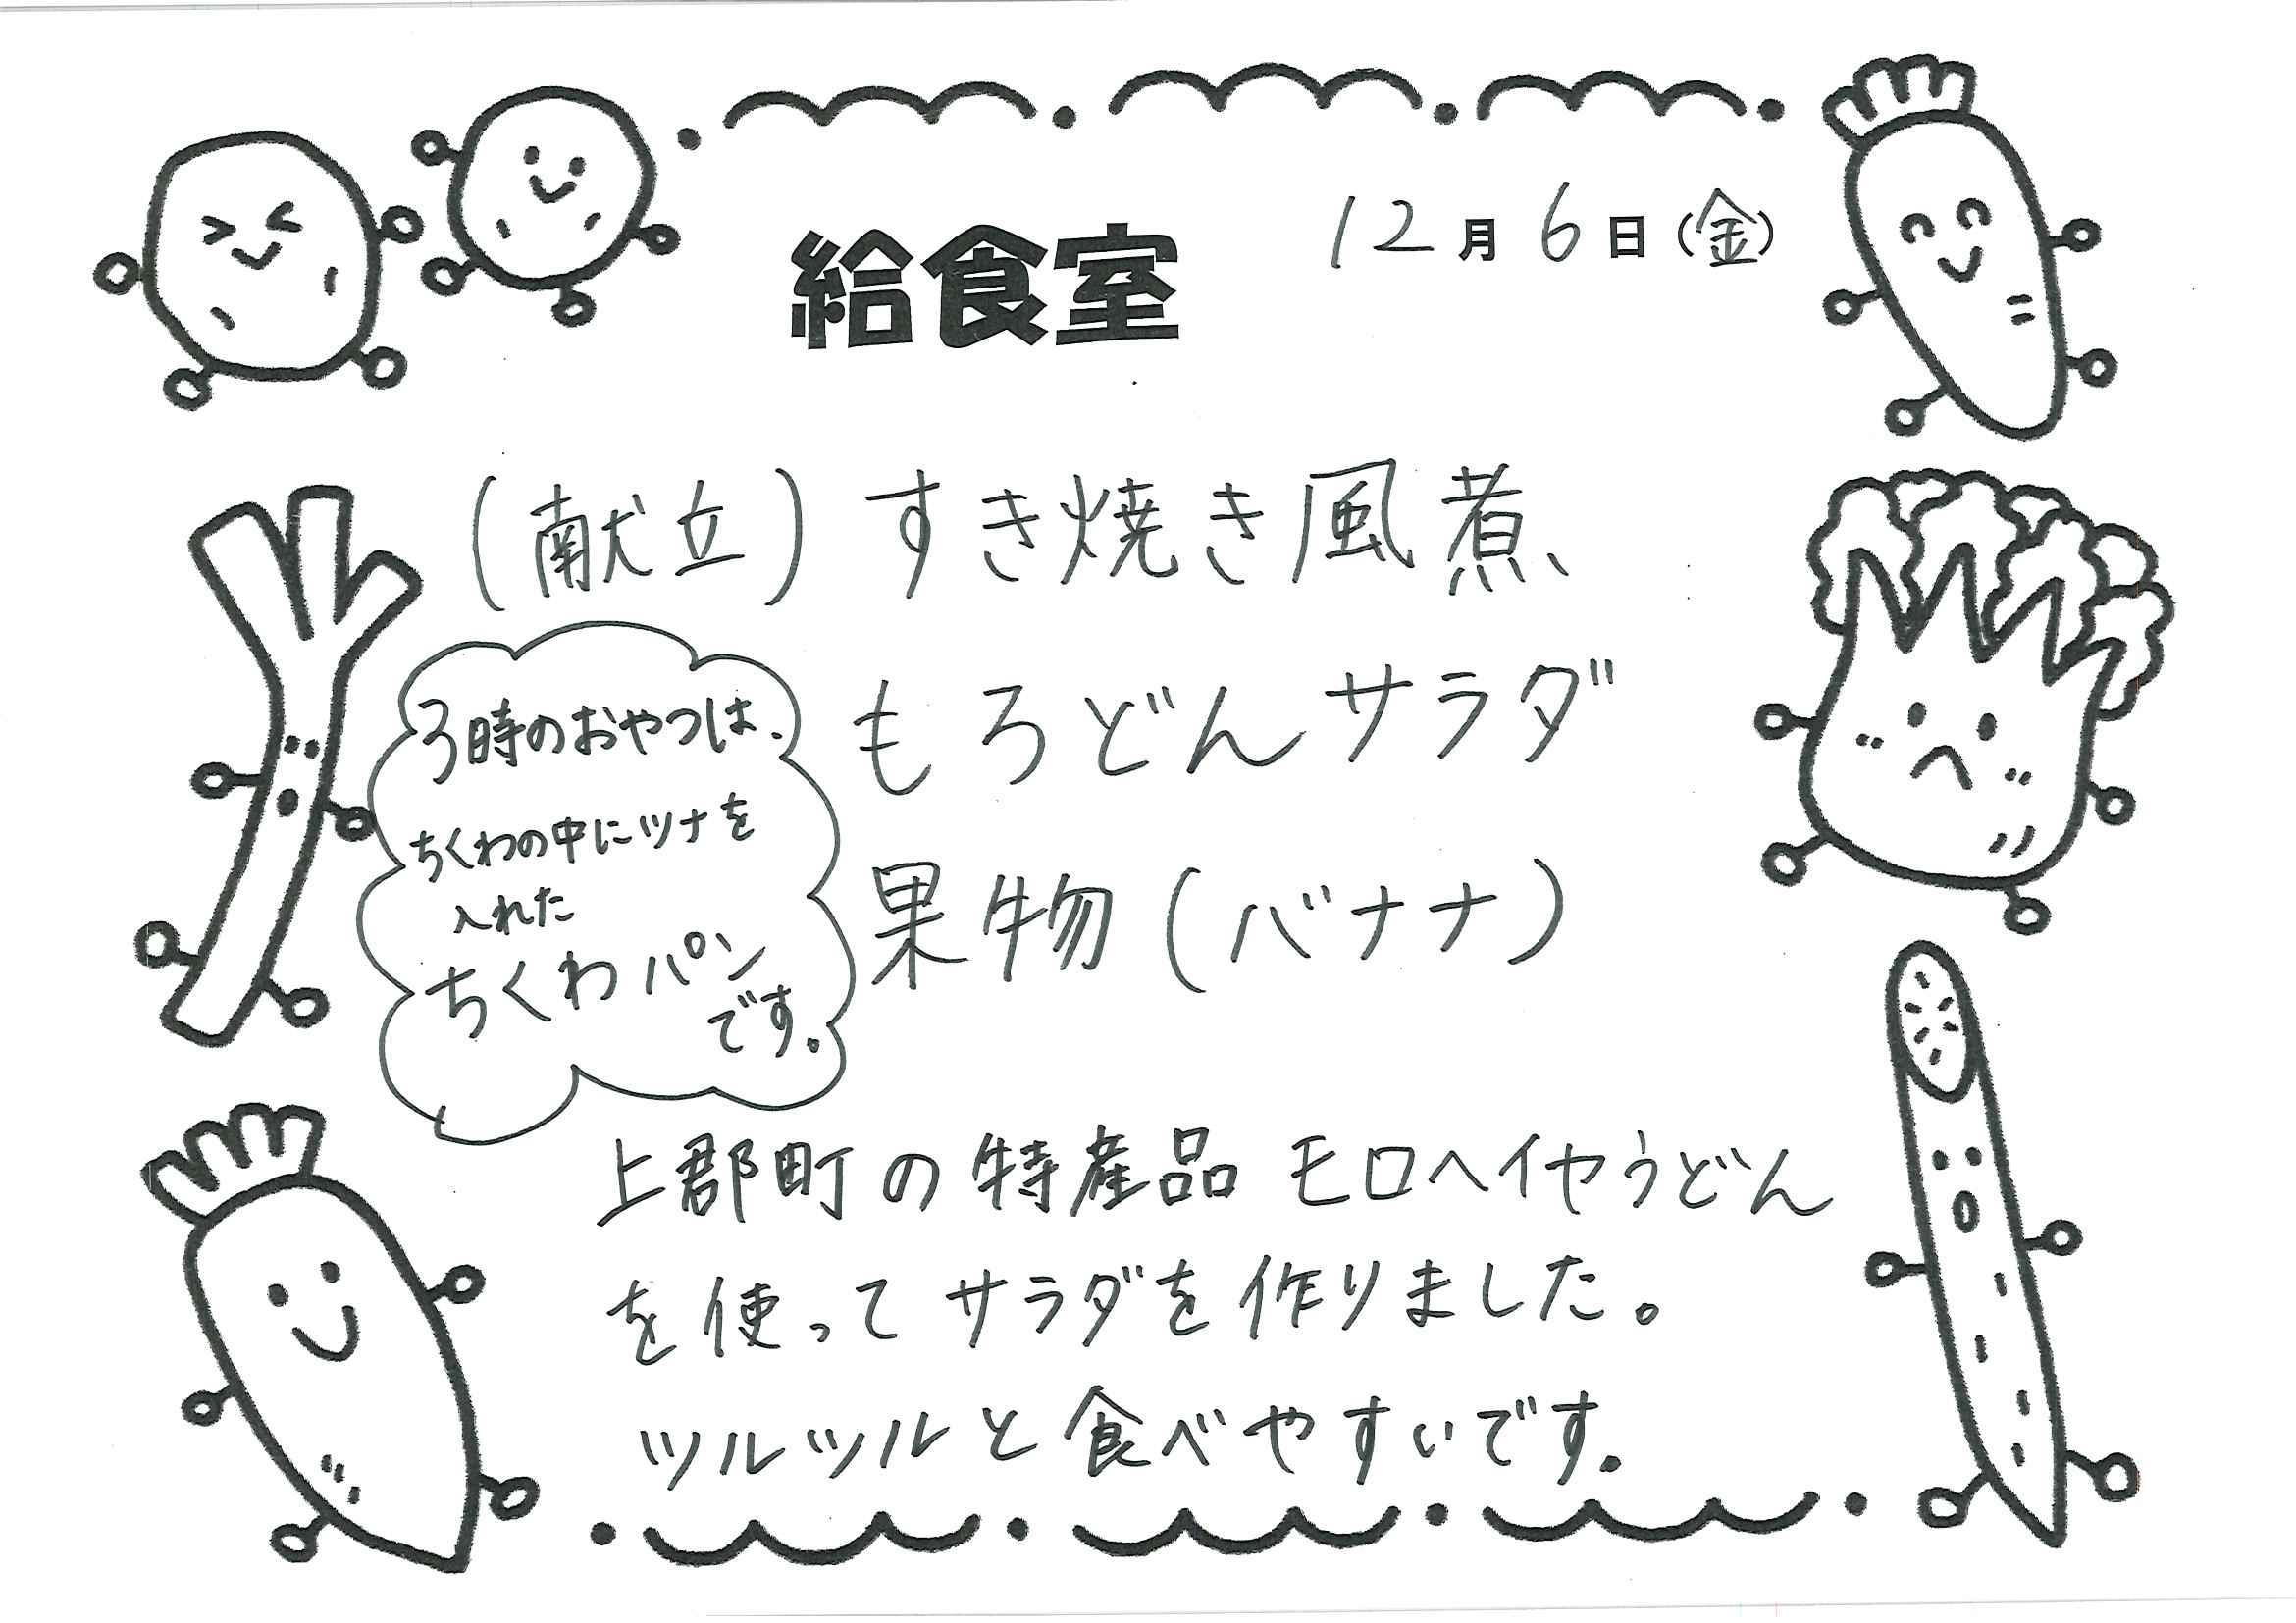 給食室
12月6日(金)
(献立)すき焼き風煮、
もろどんサラダ
果物(バナナ)
3時のおやつは、
ちくわの中にツナを
入れた
ちくわパン
です。
上郡町の特産品 モロヘイヤうどん
を使ってサラダを作りました。
ツルツルと食べやすいです。